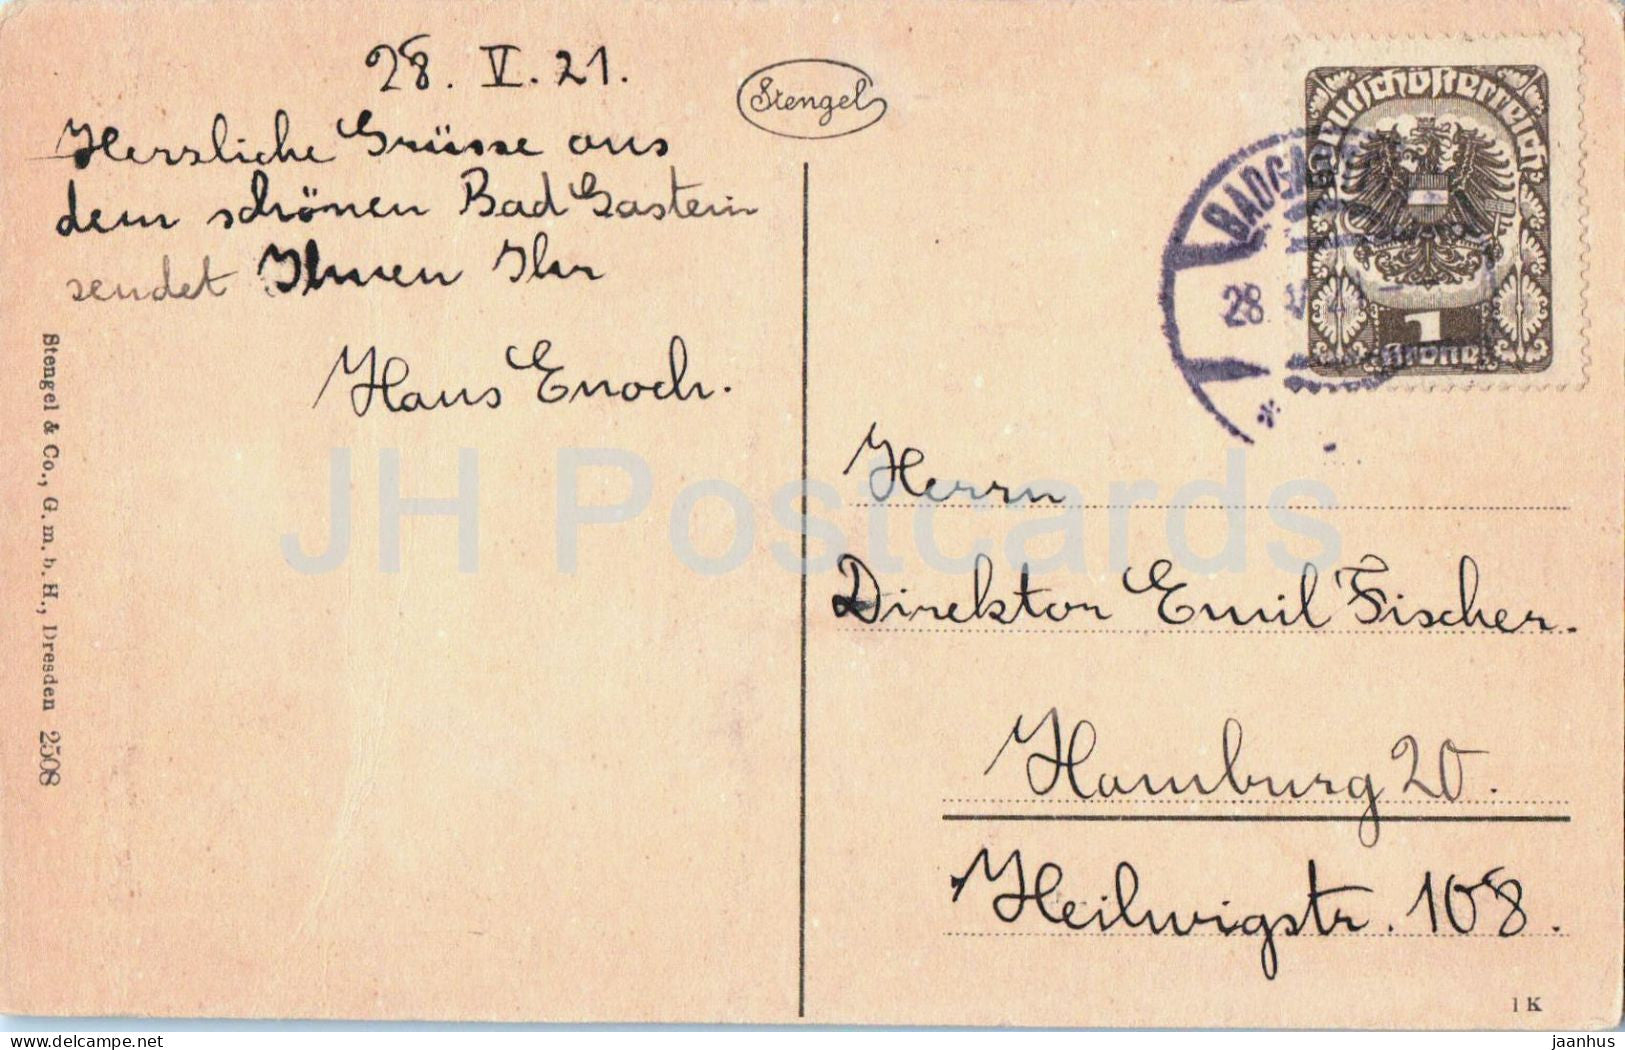 28. V. 21.
Herzliche Grüsse aus
dem schönen Bad Gastein
sendet Ihnen Ihr
Hans Enoch.
Stengel
Deutschösterreich
BADGASTEIN
28
1
Krone
Herrn
Direktor Emil Fischer.
Hamburg 20.
Heilwigstr. 108.
Stengel & Co., G. m. b. H., Dresden 2508
1 K
JH Postcards
delcampe.net
jaanhus